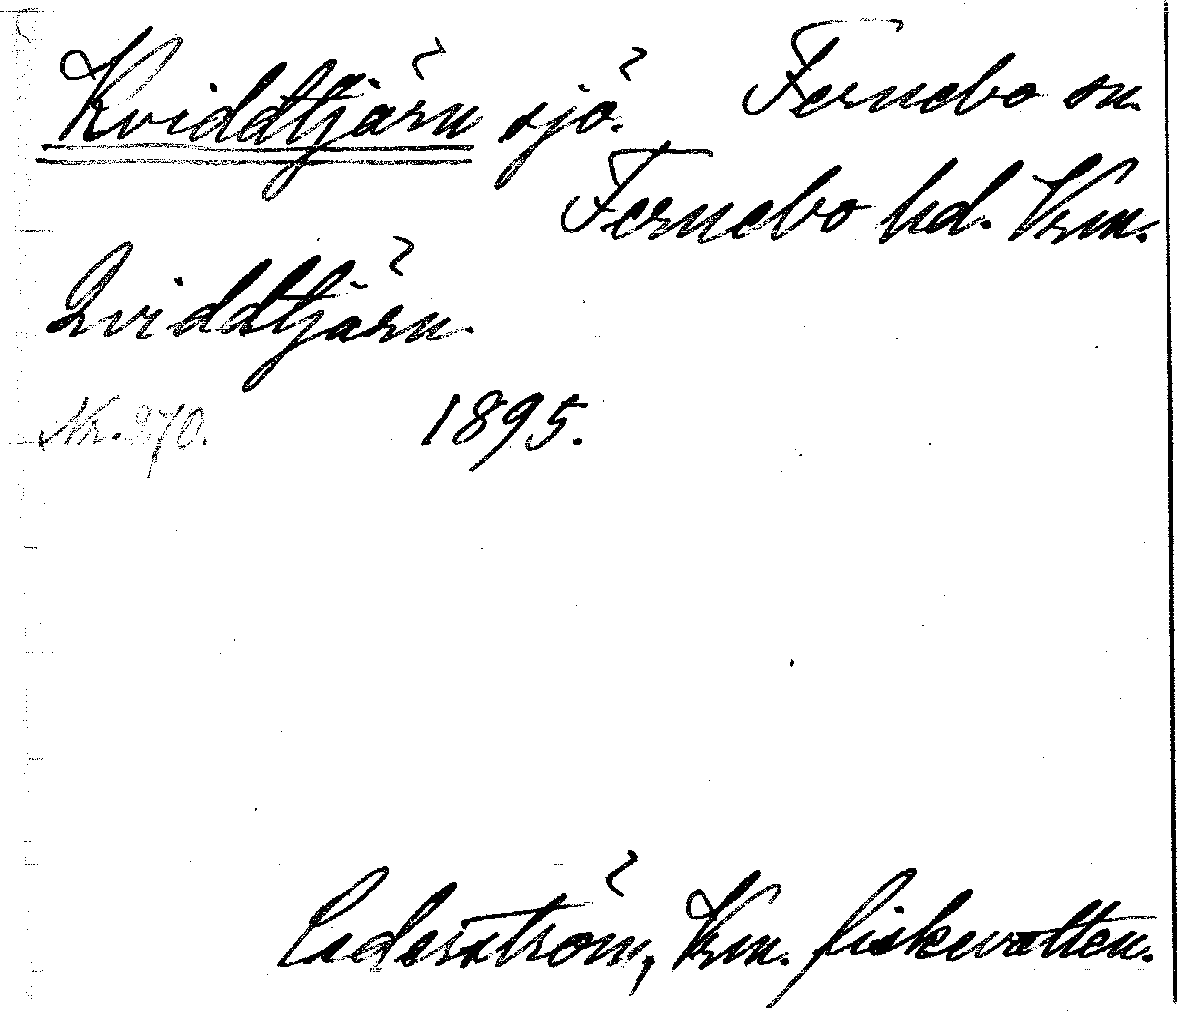 Kviddtjärn sjö. Fernebo sn.
Fernebo hd. Vrm.
Qviddtjärn
Nr. 270. 1895.
Cederström, Vrm. fiskevatten.